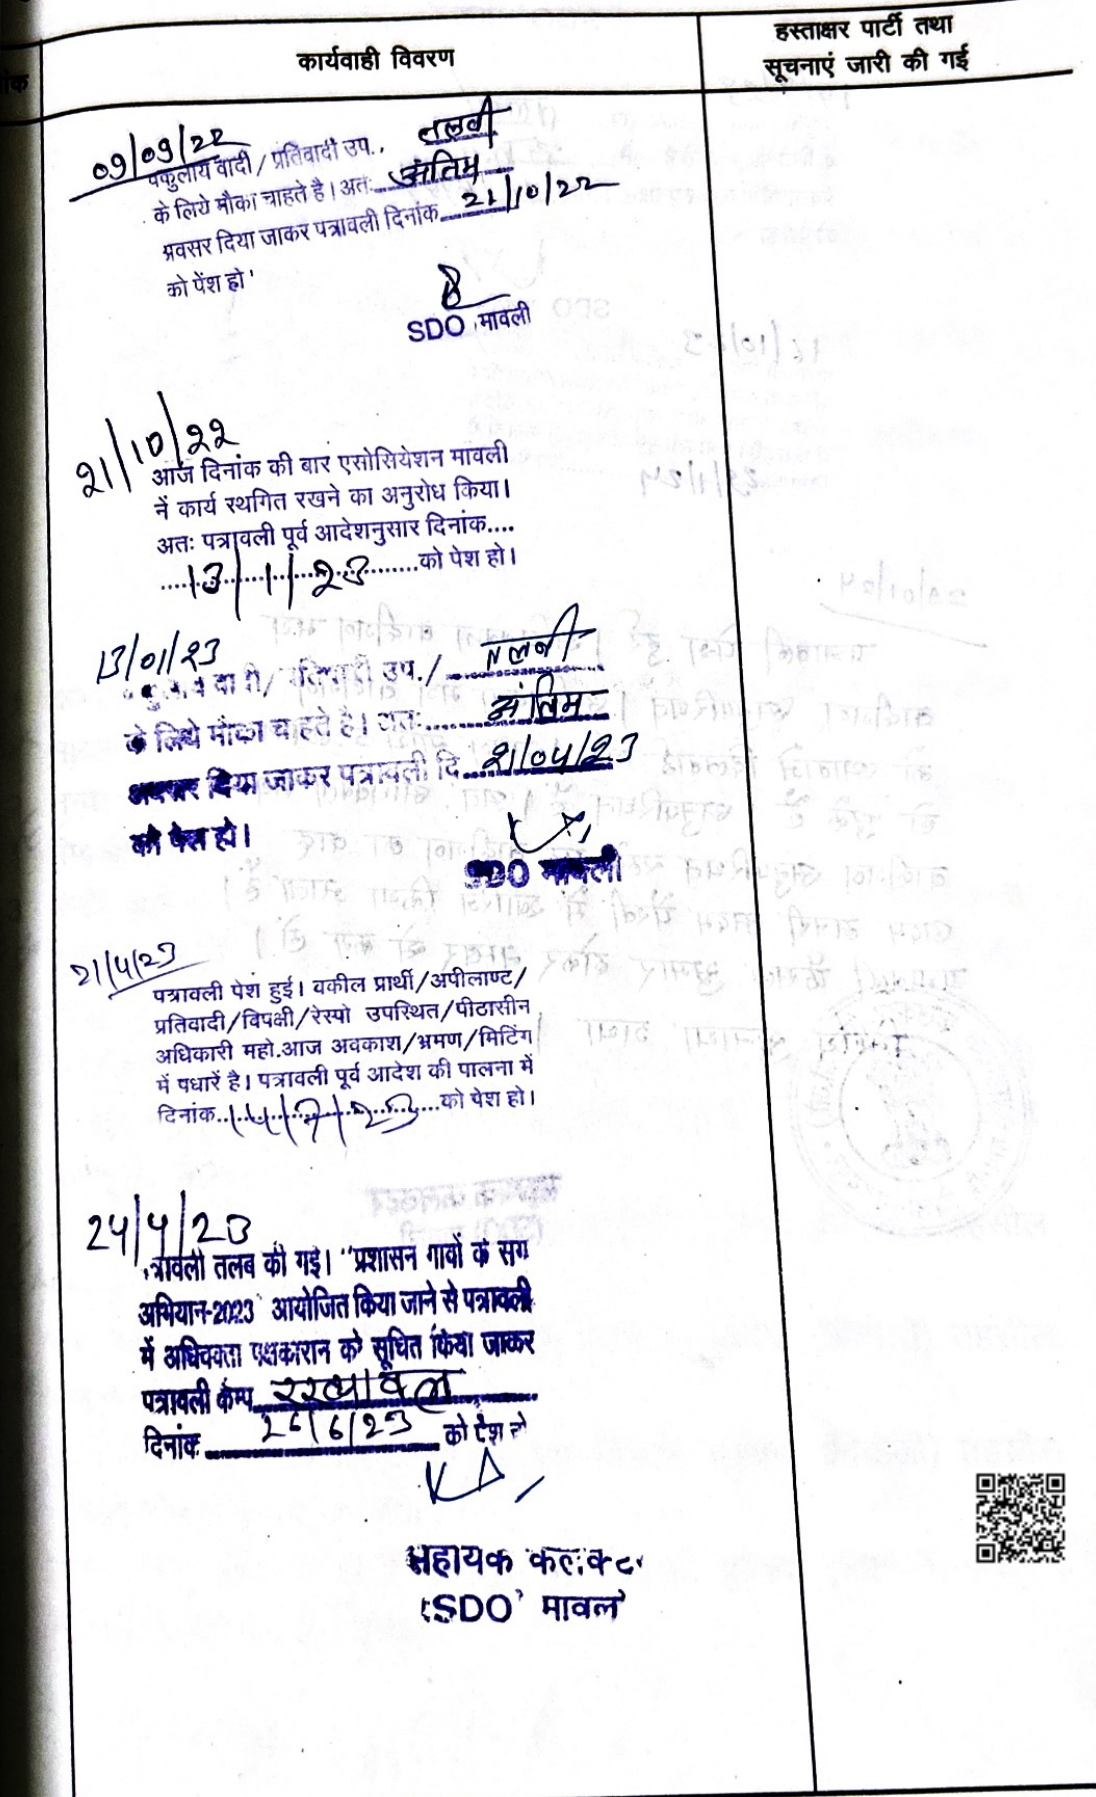 कार्यवाही विवरण
हस्ताक्षर पार्टी तथा
सूचनाएं जारी की गई
09/09/22
वकुलाय वादी / प्रतिवादी उप., तलवी
के लिये मौका चाहते है। अतः अंतिम
अवसर दिया जाकर पत्रावली दिनांक 21/10/22
को पेंश हो
SDO मावली
21/10/22
आज दिनांक की बार एसोसियेशन मावली
नें कार्य स्थगित रखने का अनुरोध किया।
अतः पत्रावली पूर्व आदेशनुसार दिनांक....
.....13/1/23.....को पेश हो।
13/01/23
वादी/ प्रतिवादी उप./ तलवी
के लिये मौका चाहते है। अतः...... अंतिम
अवसर दिया जाकर पत्रावली दि. 21/04/23
को पेश हो।
SDO मावली
21/4/23
पत्रावली पेश हुई। वकील प्रार्थी/अपीलाण्ट/
प्रतिवादी/विपक्षी/रेस्पो उपस्थित/पीठासीन
अधिकारी महो.आज अवकाश/भ्रमण/मिटिंग
में पधारें है। पत्रावली पूर्व आदेश की पालना में
दिनांक..14/7/23....को पेश हो।
24/4/23
त्रावली तलब की गई। "प्रशासन गावों के संग
अभियान-2023 आयोजित किया जाने से पत्रावली
में अधिवक्ता पक्षकारान को सूचित किया जाकर
पत्रावली कैम्प
दिनांक 26/6/23 को पेश हो
सहायक कलक्ट
SDO मावल